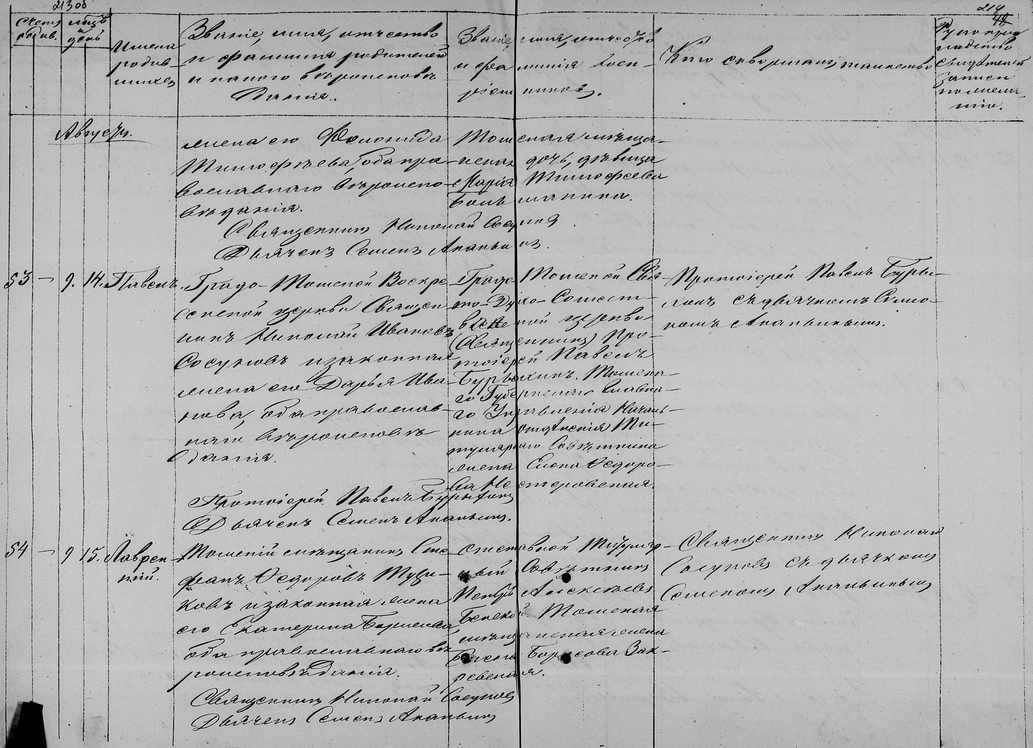 214
Счетъ родив.
мѣс. и день
Имена родив-шихся
Званіе, имя, отчество
и фамилія родителей
и какого вѣроисповѣ-
данія.
Званіе, имя, отчество
и фамилія воспріем-
никовъ.
Кто совершалъ таинство
Рукопри-
кладство
свидѣтелей
записи
по жела-
нію.
Августъ.
жена его
Тимофѣева, оба пра-
вославнаго вѣроиспо-
вѣданія.
Священникъ Николай Сосуновъ
Дьячекъ Семенъ Ананьинъ.
Томская мѣща-
нская дочь, дѣвица
Марія Тимофеева
53 — 9. 14. Павелъ.
Градо-Томской Воскре-
сенской церкви Священ-
никъ Николай Ивановъ
Сосуновъ и законная
жена его Дарья Ива-
нова, оба православ-
наго вѣроисповѣ-
данія.
Протоіерей Павелъ
Дьячекъ Семенъ Ананьинъ.
Градо-Томской Свя-
то-Духо-Сошест-
венской церкви
(Священникъ) Про-
тоіерей Павелъ
Томска-
го Губернскаго
го Управленія Началь-
ника отдѣленія Ти-
тулярнаго Совѣтника
жена Елена Ѳедоро-
ва Нестеровская.
Протоіерей Павелъ
съ дьячкомъ Семе-
номъ Ананьинымъ.
54 — 9 15. Лаврен-
тій.
Томскій мѣщанинъ Сте-
фанъ Ѳедоровъ
и законная жена
его Екатерина Борисова,
оба православнаго вѣ-
роисповѣданія.
Священникъ Николай Сосуновъ
Дьячекъ Семенъ Ананьинъ
Титуляр-
ный Совѣтникъ
Петръ Алексѣевъ
Томская
мѣщанская жена
Елена Борисова Зак-
ревская.
Священникъ Николай
Сосуновъ съ дьячкомъ
Семеномъ Ананьинымъ